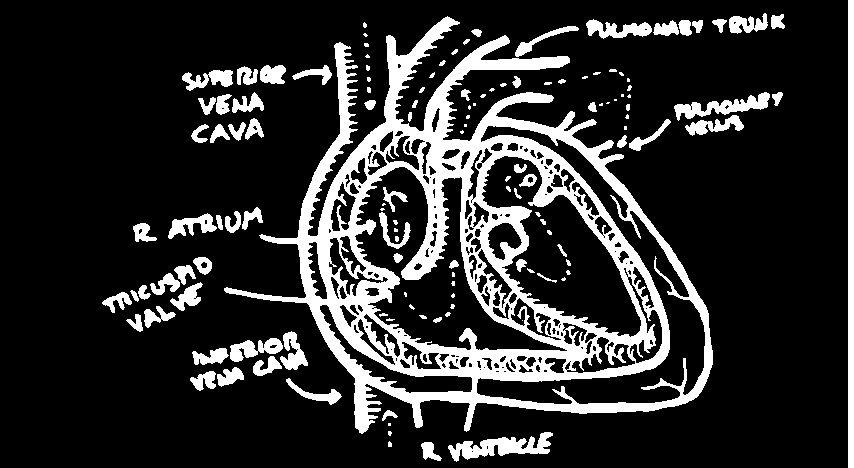 PULMONARY TRUNK
SUPERIOR
VENA
CAVA
PULMONARY
VEINS
R ATRIUM
TRICUSPID
VALVE
INFERIOR
VENA CAVA
R VENTRICLE